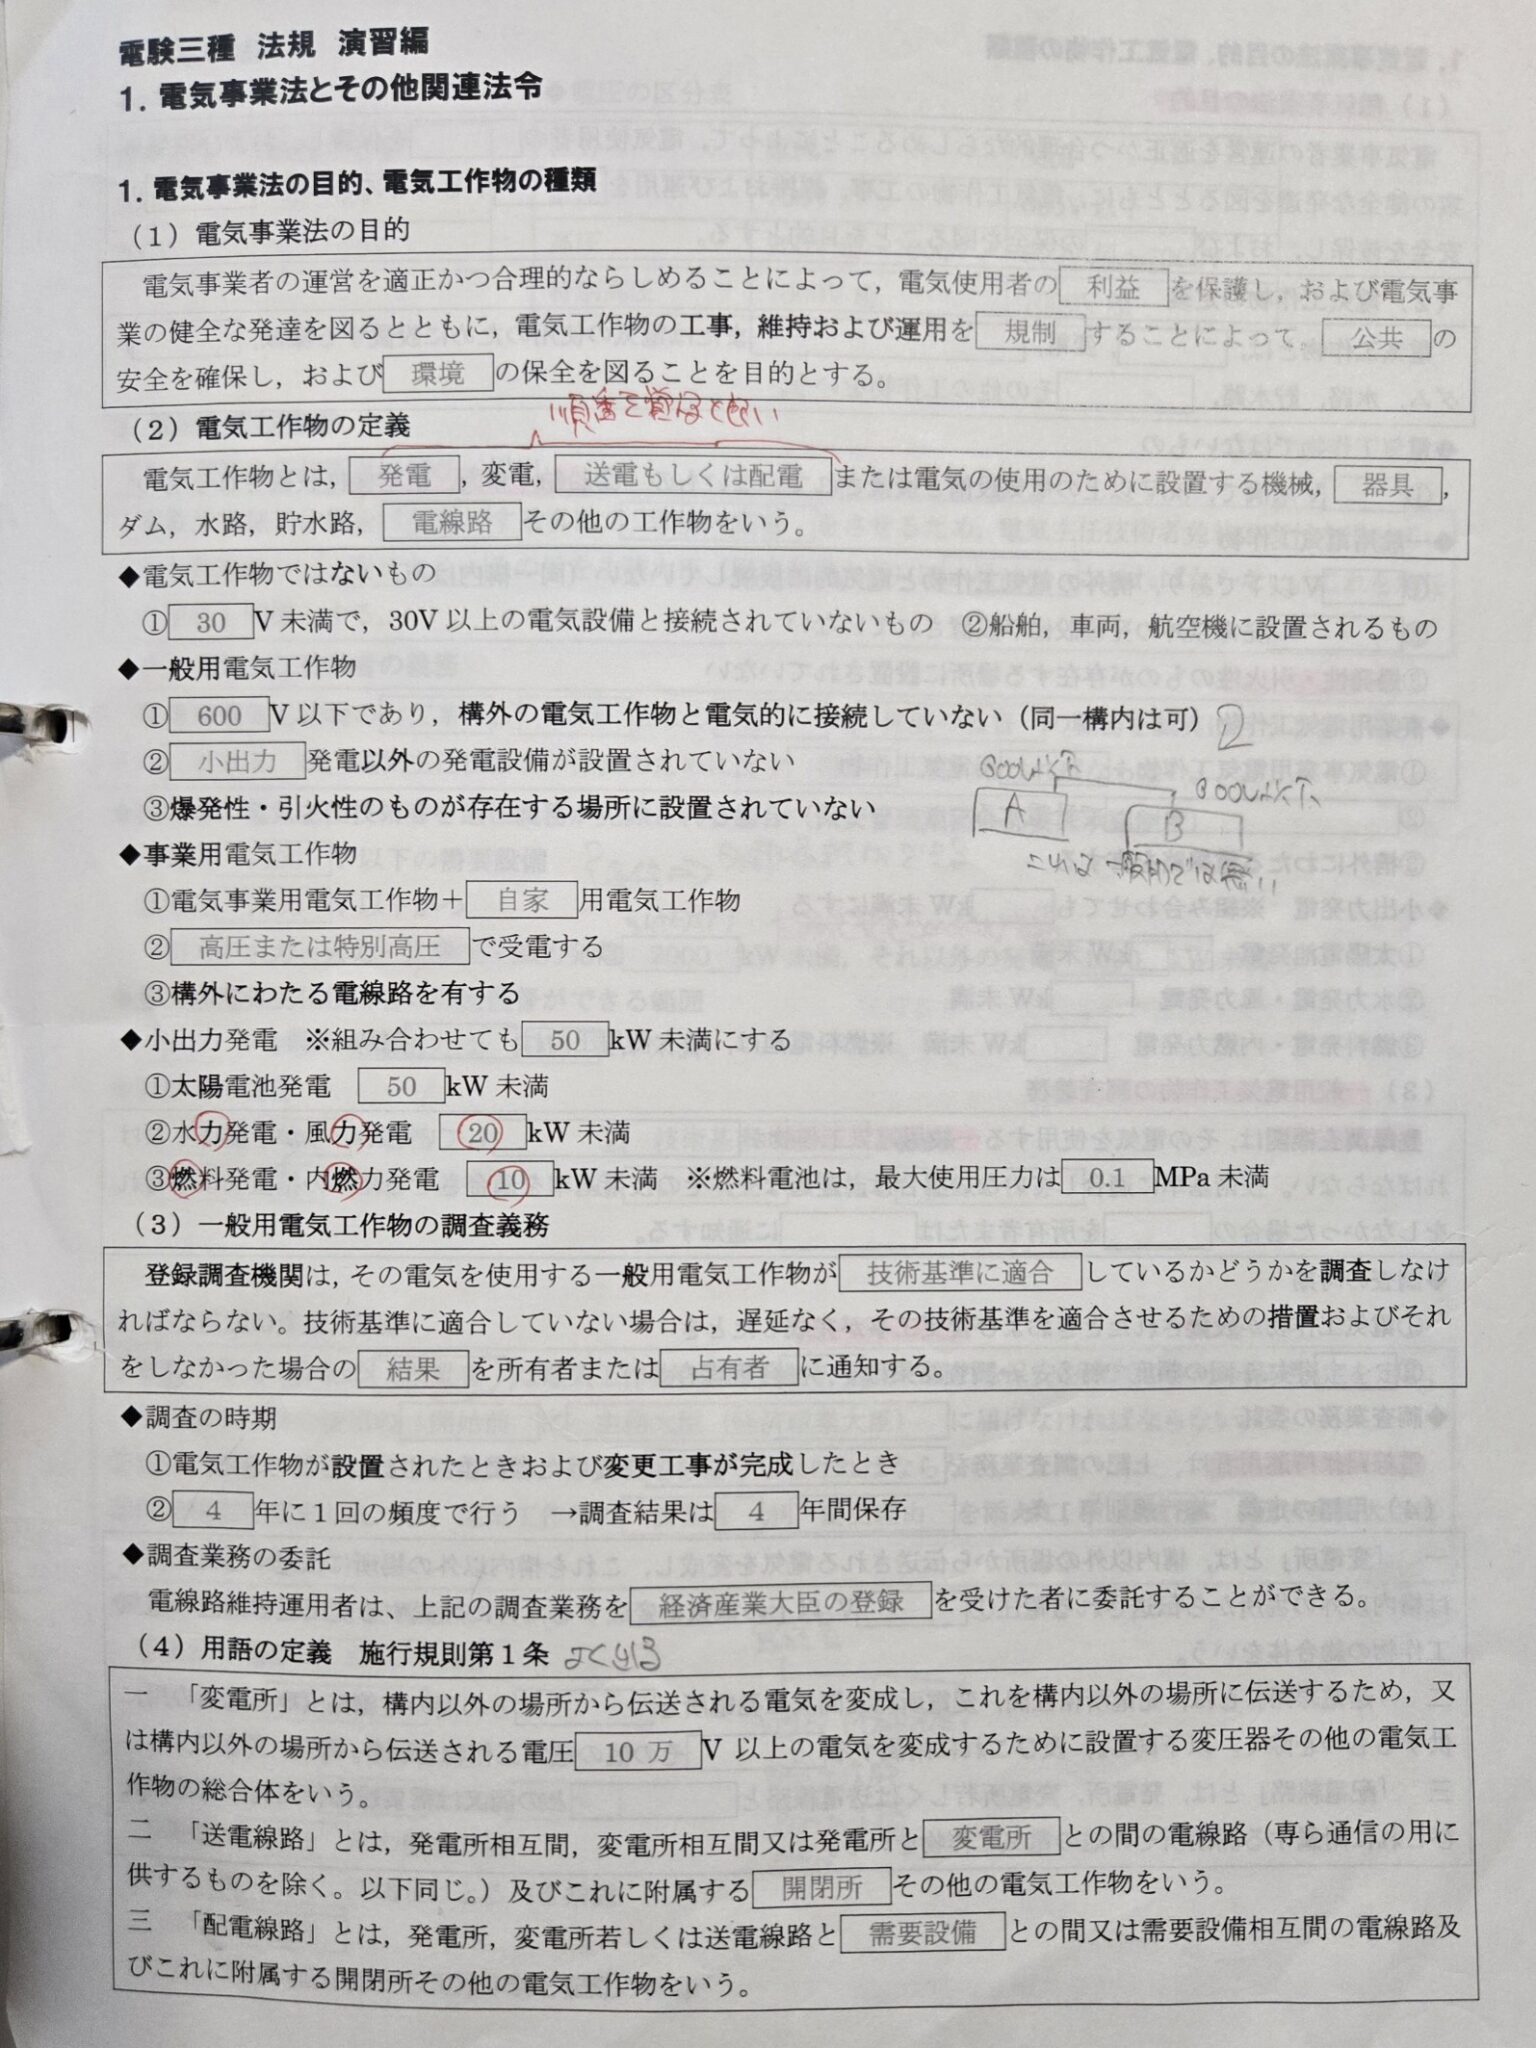 電験三種 法規 演習編
1. 電気事業法とその他関連法令
1. 電気事業法の目的、電気工作物の種類
(1) 電気事業法の目的
電気事業者の運営を適正かつ合理的ならしめることによって，電気使用者の 利益 を保護し，および電気事
業の健全な発達を図るとともに，電気工作物の工事，維持および運用を 規制 することによって，公共 の
安全を確保し，および 環境 の保全を図ることを目的とする。
(2) 電気工作物の定義
電気工作物とは， 発電 ，変電， 送電もしくは配電 または電気の使用のために設置する機械， 器具 ，
ダム，水路，貯水路， 電線路 その他の工作物をいう。
◆電気工作物ではないもの
① 30 V 未満で，30V 以上の電気設備と接続されていないもの ②船舶，車両，航空機に設置されるもの
◆一般用電気工作物
① 600 V 以下であり，構外の電気工作物と電気的に接続していない（同一構内は可）
② 小出力 発電以外の発電設備が設置されていない
600V以下
600V以下
③爆発性・引火性のものが存在する場所に設置されていない
A
B
◆事業用電気工作物
これは一般用では無い
①電気事業用電気工作物＋ 自家 用電気工作物
② 高圧または特別高圧 で受電する
③構外にわたる電線路を有する
◆小出力発電 ※組み合わせても 50 kW 未満にする
①太陽電池発電 50 kW 未満
②水力発電・風力発電 20 kW 未満
③燃料発電・内燃力発電 10 kW 未満 ※燃料電池は，最大使用圧力は 0.1 MPa 未満
(3) 一般用電気工作物の調査義務
登録調査機関は，その電気を使用する一般用電気工作物が 技術基準に適合 しているかどうかを調査しなけ
ればならない。技術基準に適合していない場合は，遅延なく，その技術基準を適合させるための措置およびそれ
をしなかった場合の 結果 を所有者または 占有者 に通知する。
◆調査の時期
①電気工作物が設置されたときおよび変更工事が完成したとき
② 4 年に１回の頻度で行う →調査結果は 4 年間保存
◆調査業務の委託
電線路維持運用者は、上記の調査業務を 経済産業大臣の登録 を受けた者に委託することができる。
(4) 用語の定義 施行規則第１条 よく出る
一 「変電所」とは，構内以外の場所から伝送される電気を変成し，これを構内以外の場所に伝送するため，又
は構内以外の場所から伝送される電圧 10 万 V 以上の電気を変成するために設置する変圧器その他の電気工
作物の総合体をいう。
二 「送電線路」とは，発電所相互間，変電所相互間又は発電所と 変電所 との間の電線路（専ら通信の用に
供するものを除く。以下同じ。）及びこれに附属する 開閉所 その他の電気工作物をいう。
三 「配電線路」とは，発電所，変電所若しくは送電線路と 需要設備 との間又は需要設備相互間の電線路及
びこれに附属する開閉所その他の電気工作物をいう。